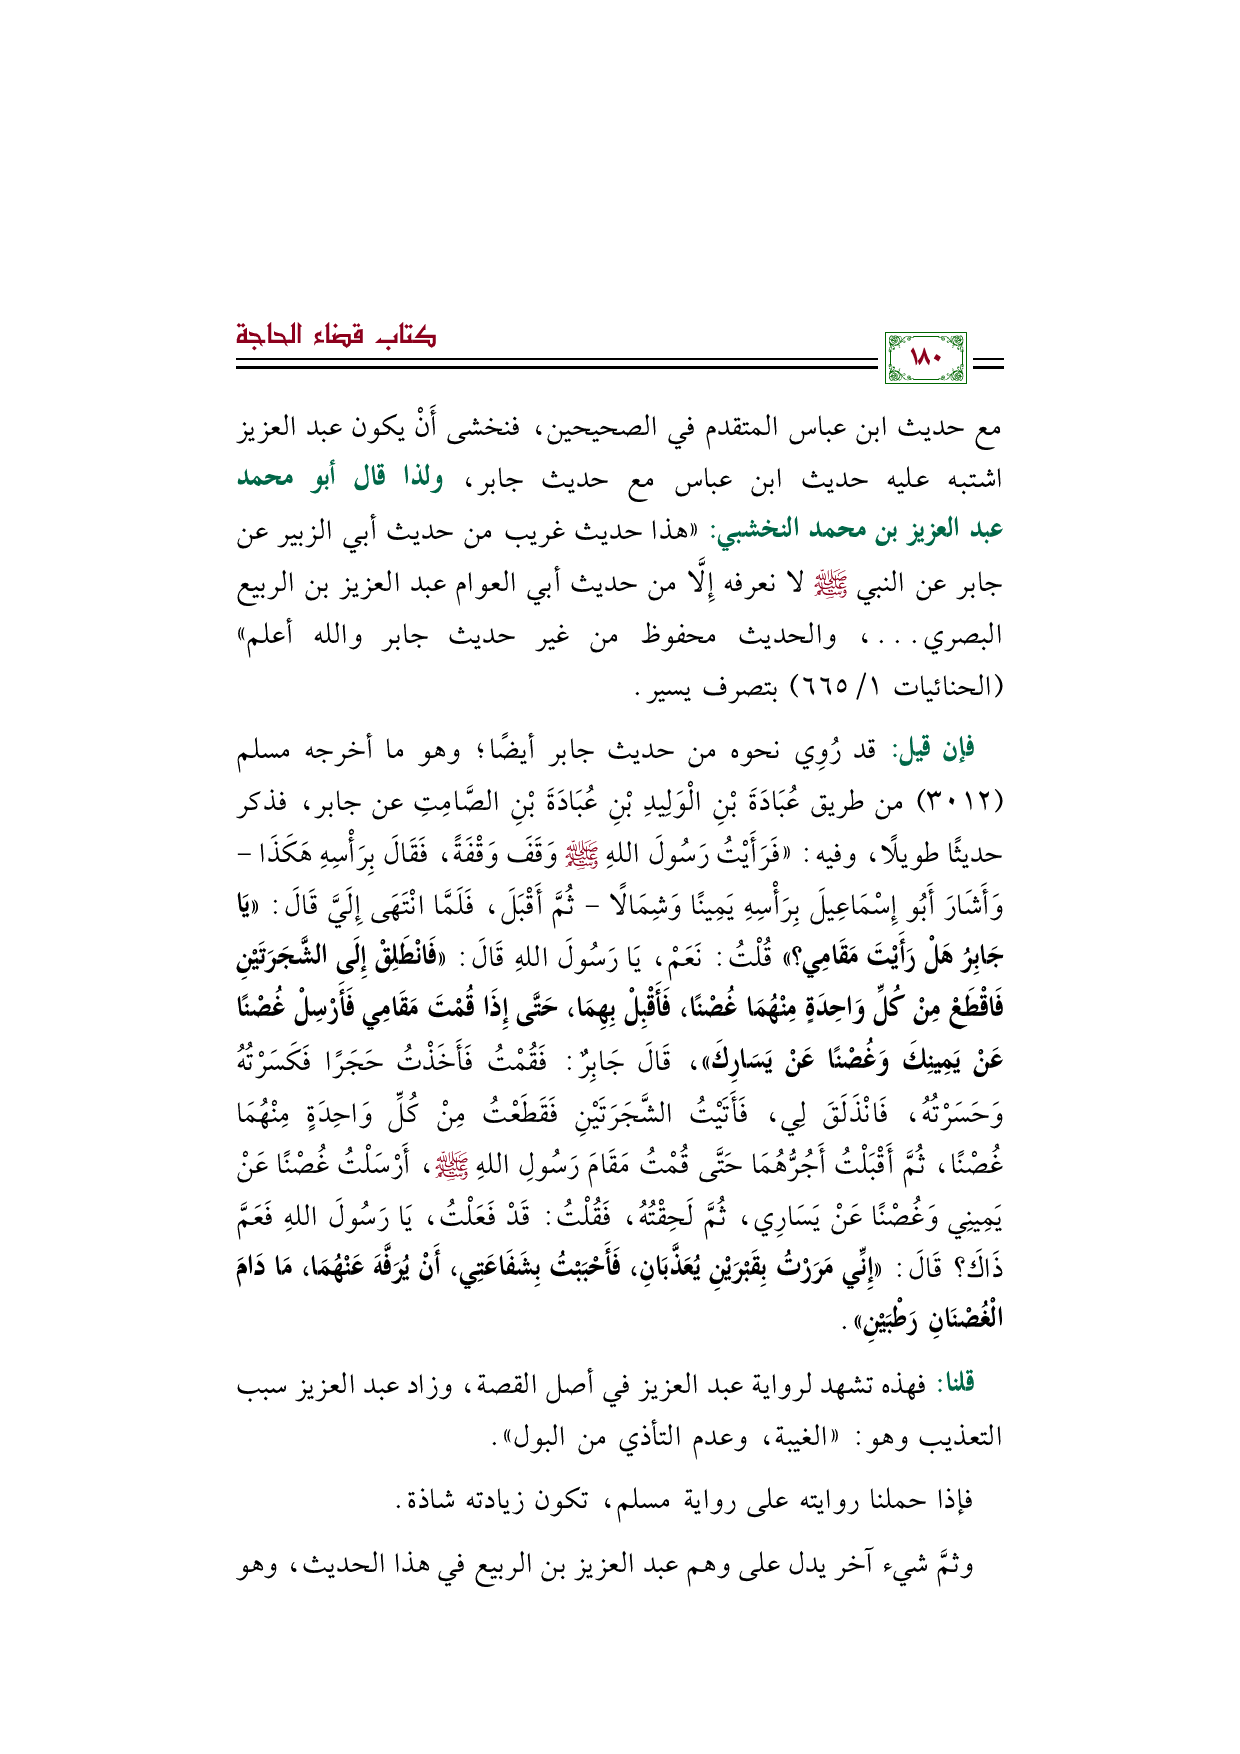 كتاب قضاء الحاجة
١٨٠
مع حديث ابن عباس المتقدم في الصحيحين، فنخشى أَنْ يكون عبد العزيز
اشتبه عليه حديث ابن عباس مع حديث جابر، ولذا قال أبو محمد
عبد العزيز بن محمد النخشبي: «هذا حديث غريب من حديث أبي الزبير عن
جابر عن النبي ﷺ لا نعرفه إِلَّا من حديث أبي العوام عبد العزيز بن الربيع
البصري...، والحديث محفوظ من غير حديث جابر والله أعلم»
(الحنائيات ١/ ٦٦٥) بتصرف يسير.
فإن قيل: قد رُوِي نحوه من حديث جابر أيضًا؛ وهو ما أخرجه مسلم
(٣٠١٢) من طريق عُبَادَةَ بْنِ الْوَلِيدِ بْنِ عُبَادَةَ بْنِ الصَّامِتِ عن جابر، فذكر
حديثًا طويلًا، وفيه: «فَرَأَيْتُ رَسُولَ اللهِ ﷺ وَقَفَ وَقْفَةً، فَقَالَ بِرَأْسِهِ هَكَذَا -
وَأَشَارَ أَبُو إِسْمَاعِيلَ بِرَأْسِهِ يَمِينًا وَشِمَالًا - ثُمَّ أَقْبَلَ، فَلَمَّا انْتَهَى إِلَيَّ قَالَ: «يَا
جَابِرُ هَلْ رَأَيْتَ مَقَامِي؟» قُلْتُ: نَعَمْ، يَا رَسُولَ اللهِ قَالَ: «فَانْطَلِقْ إِلَى الشَّجَرَتَيْنِ
فَاقْطَعْ مِنْ كُلِّ وَاحِدَةٍ مِنْهُمَا غُصْنًا، فَأَقْبِلْ بِهِمَا، حَتَّى إِذَا قُمْتَ مَقَامِي فَأَرْسِلْ غُصْنًا
عَنْ يَمِينِكَ وَغُصْنًا عَنْ يَسَارِكَ»، قَالَ جَابِرٌ: فَقُمْتُ فَأَخَذْتُ حَجَرًا فَكَسَرْتُهُ
وَحَسَرْتُهُ، فَانْذَلَقَ لِي، فَأَتَيْتُ الشَّجَرَتَيْنِ فَقَطَعْتُ مِنْ كُلِّ وَاحِدَةٍ مِنْهُمَا
غُصْنًا، ثُمَّ أَقْبَلْتُ أَجُرُّهُمَا حَتَّى قُمْتُ مَقَامَ رَسُولِ اللهِ ﷺ، أَرْسَلْتُ غُصْنًا عَنْ
يَمِينِي وَغُصْنًا عَنْ يَسَارِي، ثُمَّ لَحِقْتُهُ، فَقُلْتُ: قَدْ فَعَلْتُ، يَا رَسُولَ اللهِ فَعَمَّ
ذَاكَ؟ قَالَ: «إِنِّي مَرَرْتُ بِقَبْرَيْنِ يُعَذَّبَانِ، فَأَحْبَبْتُ بِشَفَاعَتِي، أَنْ يُرَفَّهَ عَنْهُمَا، مَا دَامَ
الْغُصْنَانِ رَطْبَيْنِ».
قلنا: فهذه تشهد لرواية عبد العزيز في أصل القصة، وزاد عبد العزيز سبب
التعذيب وهو: «الغيبة، وعدم التأذي من البول».
فإذا حملنا روايته على رواية مسلم، تكون زيادته شاذة.
وثمَّ شيء آخر يدل على وهم عبد العزيز بن الربيع في هذا الحديث، وهو